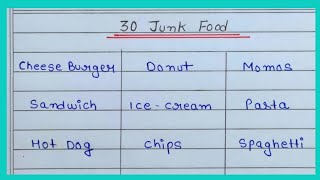 30 Junk Food
Cheese Burger Donut Momos
Sandwich Ice-cream Pasta
Hot Dog Chips Spaghetti